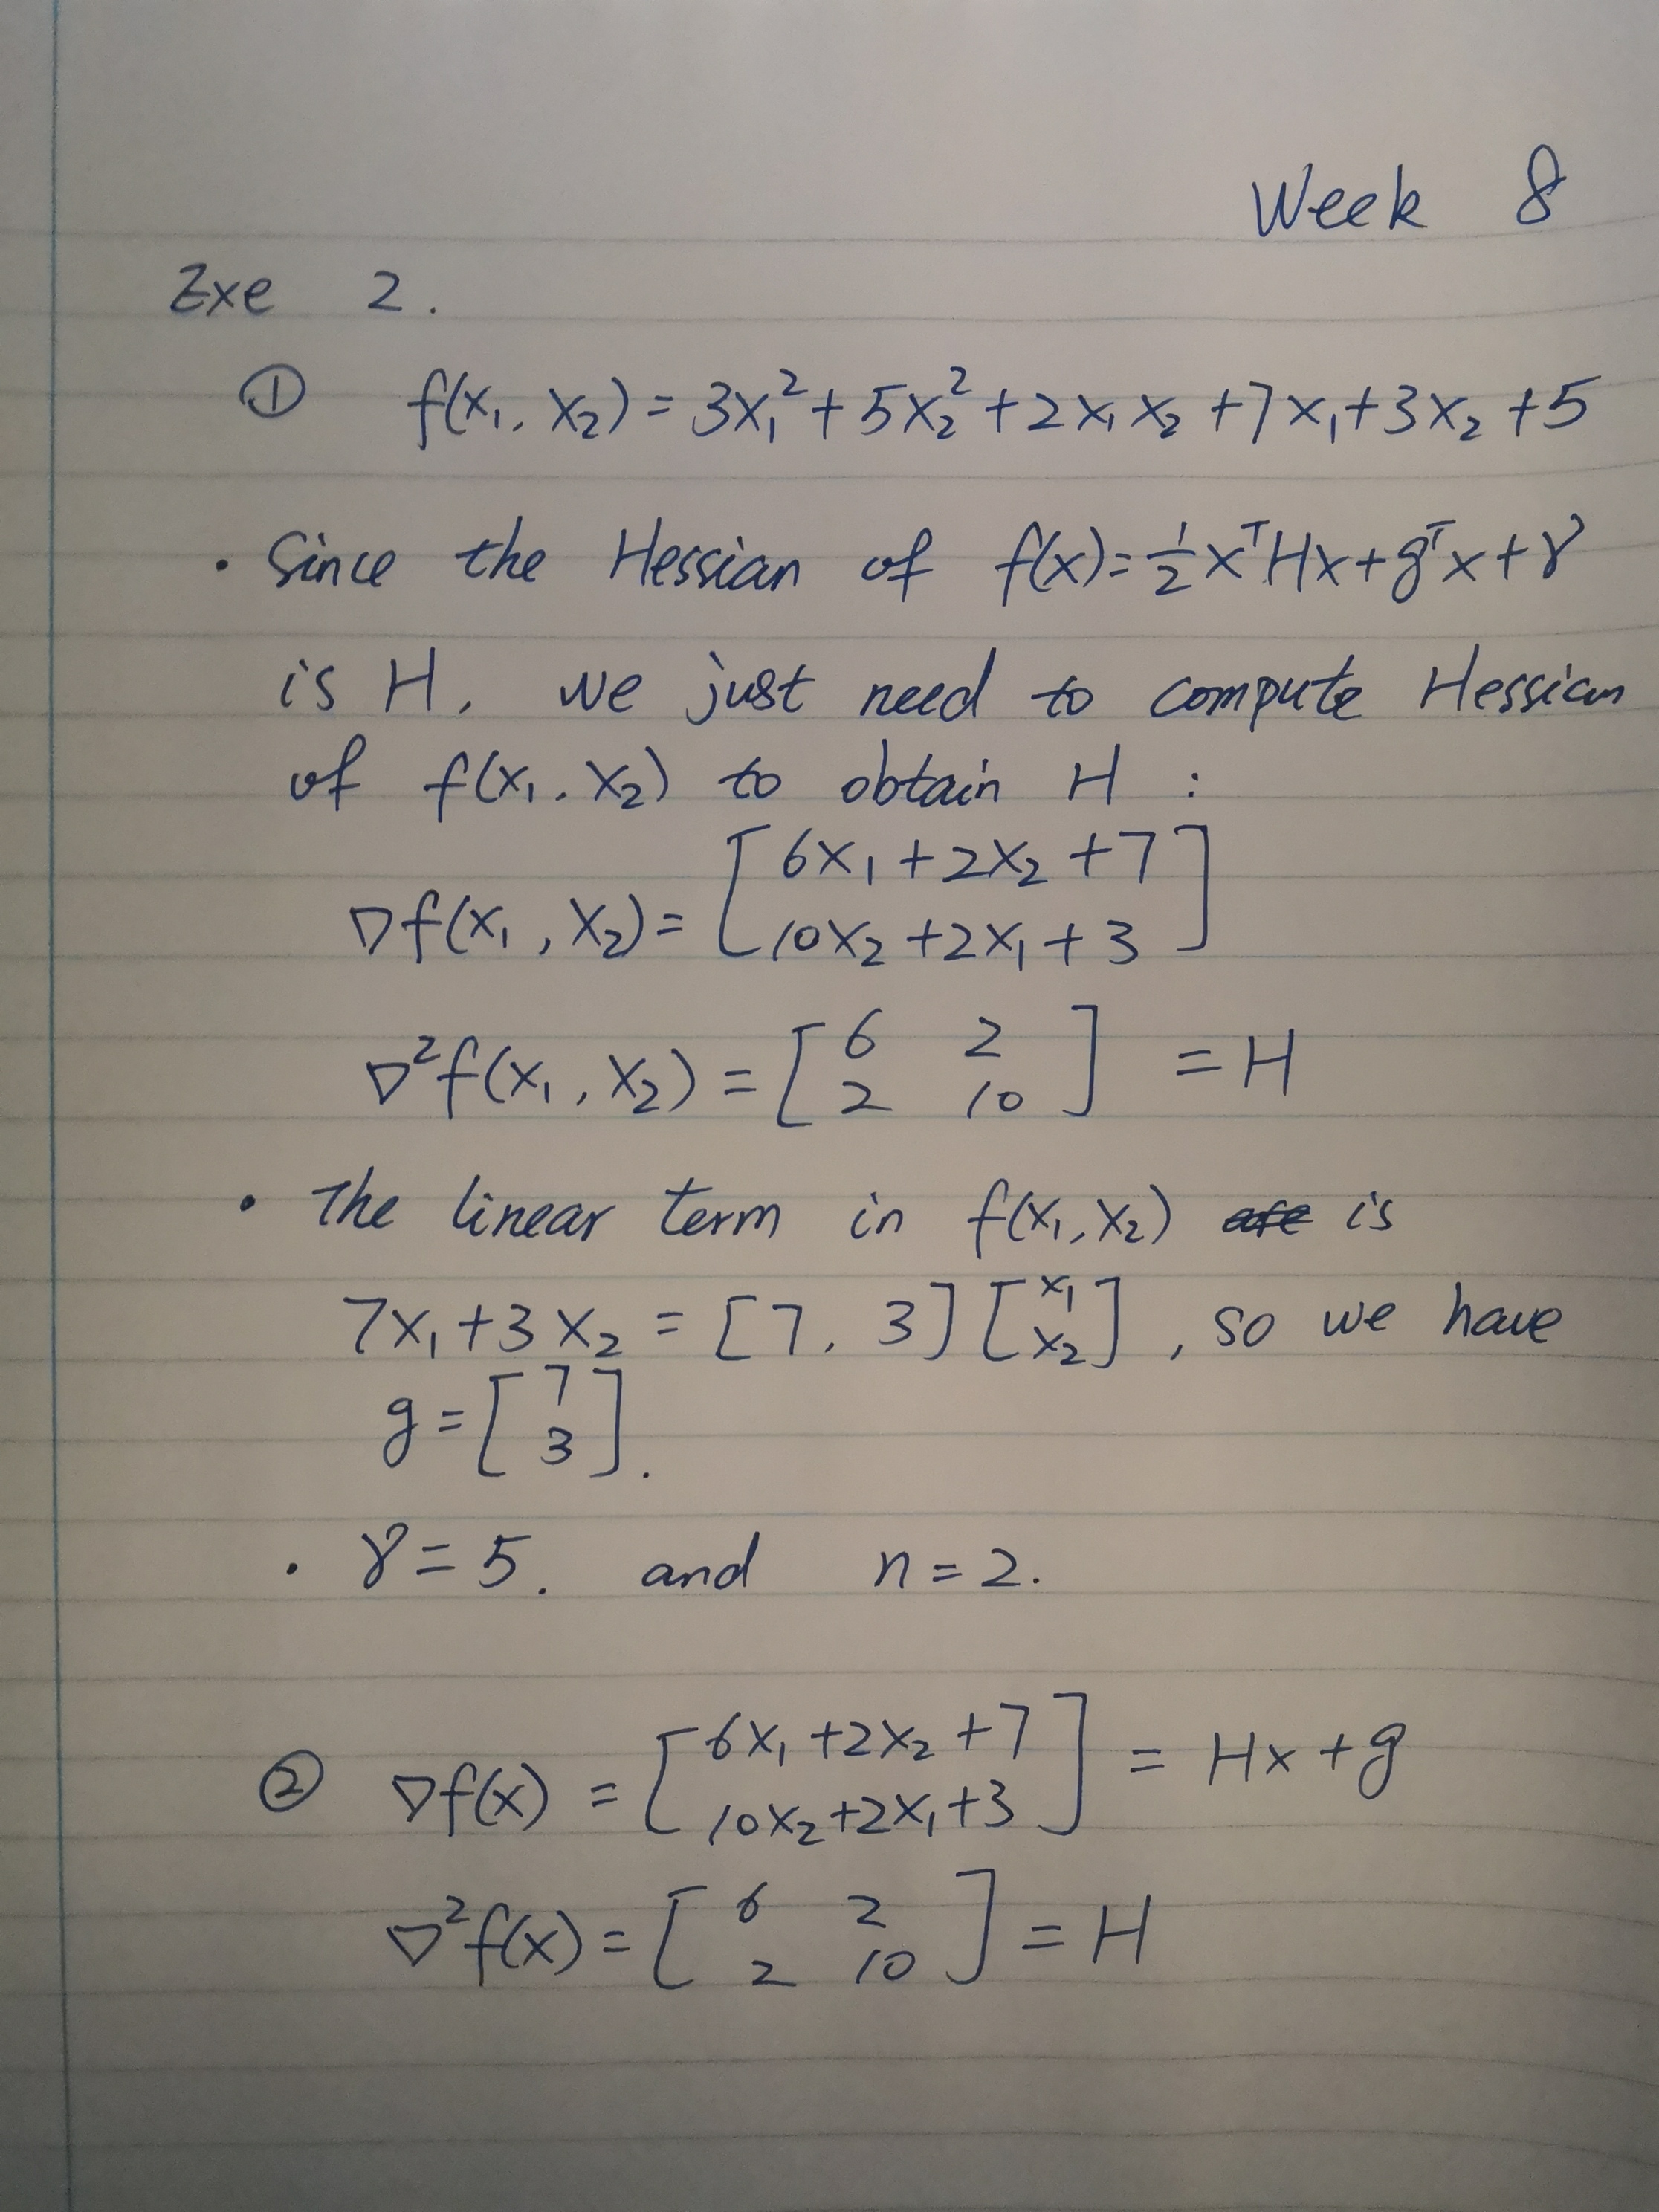 Week 8
Exe 2.
① f(x₁, x₂) = 3x₁² + 5x₂² + 2x₁x₂ + 7x₁ + 3x₂ + 5
· Since the Hessian of f(x) = ½xᵀHx + gᵀx + γ
is H, we just need to compute Hessian
of f(x₁, x₂) to obtain H :
∇f(x₁, x₂) = [6x₁ + 2x₂ + 7
10x₂ + 2x₁ + 3]
∇²f(x₁, x₂) = [6 2
2 10] = H
· The linear term in f(x₁, x₂) ~~are~~ is
7x₁ + 3x₂ = [7, 3] [x₁
x₂], so we have
g = [7
3].
· γ = 5. and n = 2.
② ∇f(x) = [6x₁ + 2x₂ + 7
10x₂ + 2x₁ + 3] = Hx + g
∇²f(x) = [6 2
2 10] = H